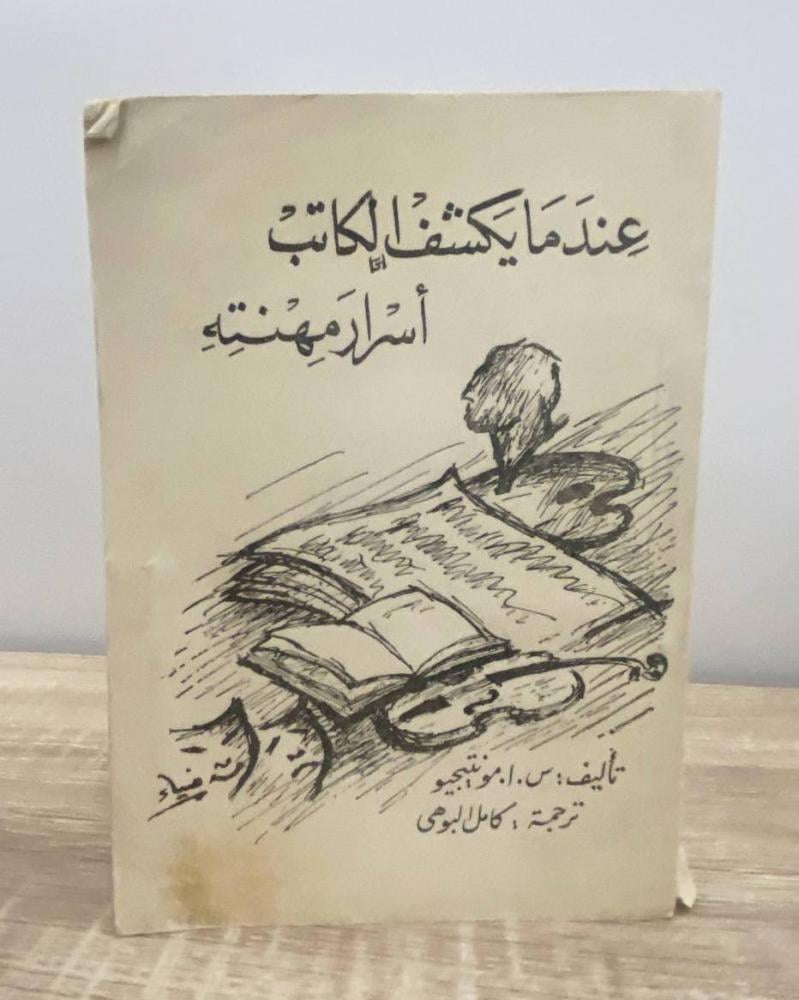 عِندَمَا يَكشفْ الكاتبْ
أسْرارَ مِهْنَتِهِ
تأليف: س. ا. مونتيجيو
ترجمة: كامل البوهى
ضياء